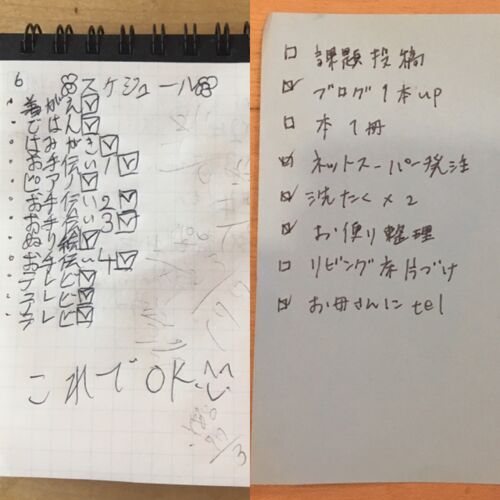 6 スケジュール
・着がえ☑
・ごはん☑
・はみがき☑
・お手伝い1☑
・ピアノ☑
・お手伝い2☑
・お手伝い3☑
・ぬり絵☑
・お手伝い4☑
・テレビ☑
・テレビ☑
・テレビ☑
これでOK
□ 課題投稿
☑ ブログ1本up
□ 本1冊
☑ ネットスーパー発注
☑ 洗たく×2
☑ お便り整理
□ リビング床片づけ
☑ お母さんにtel